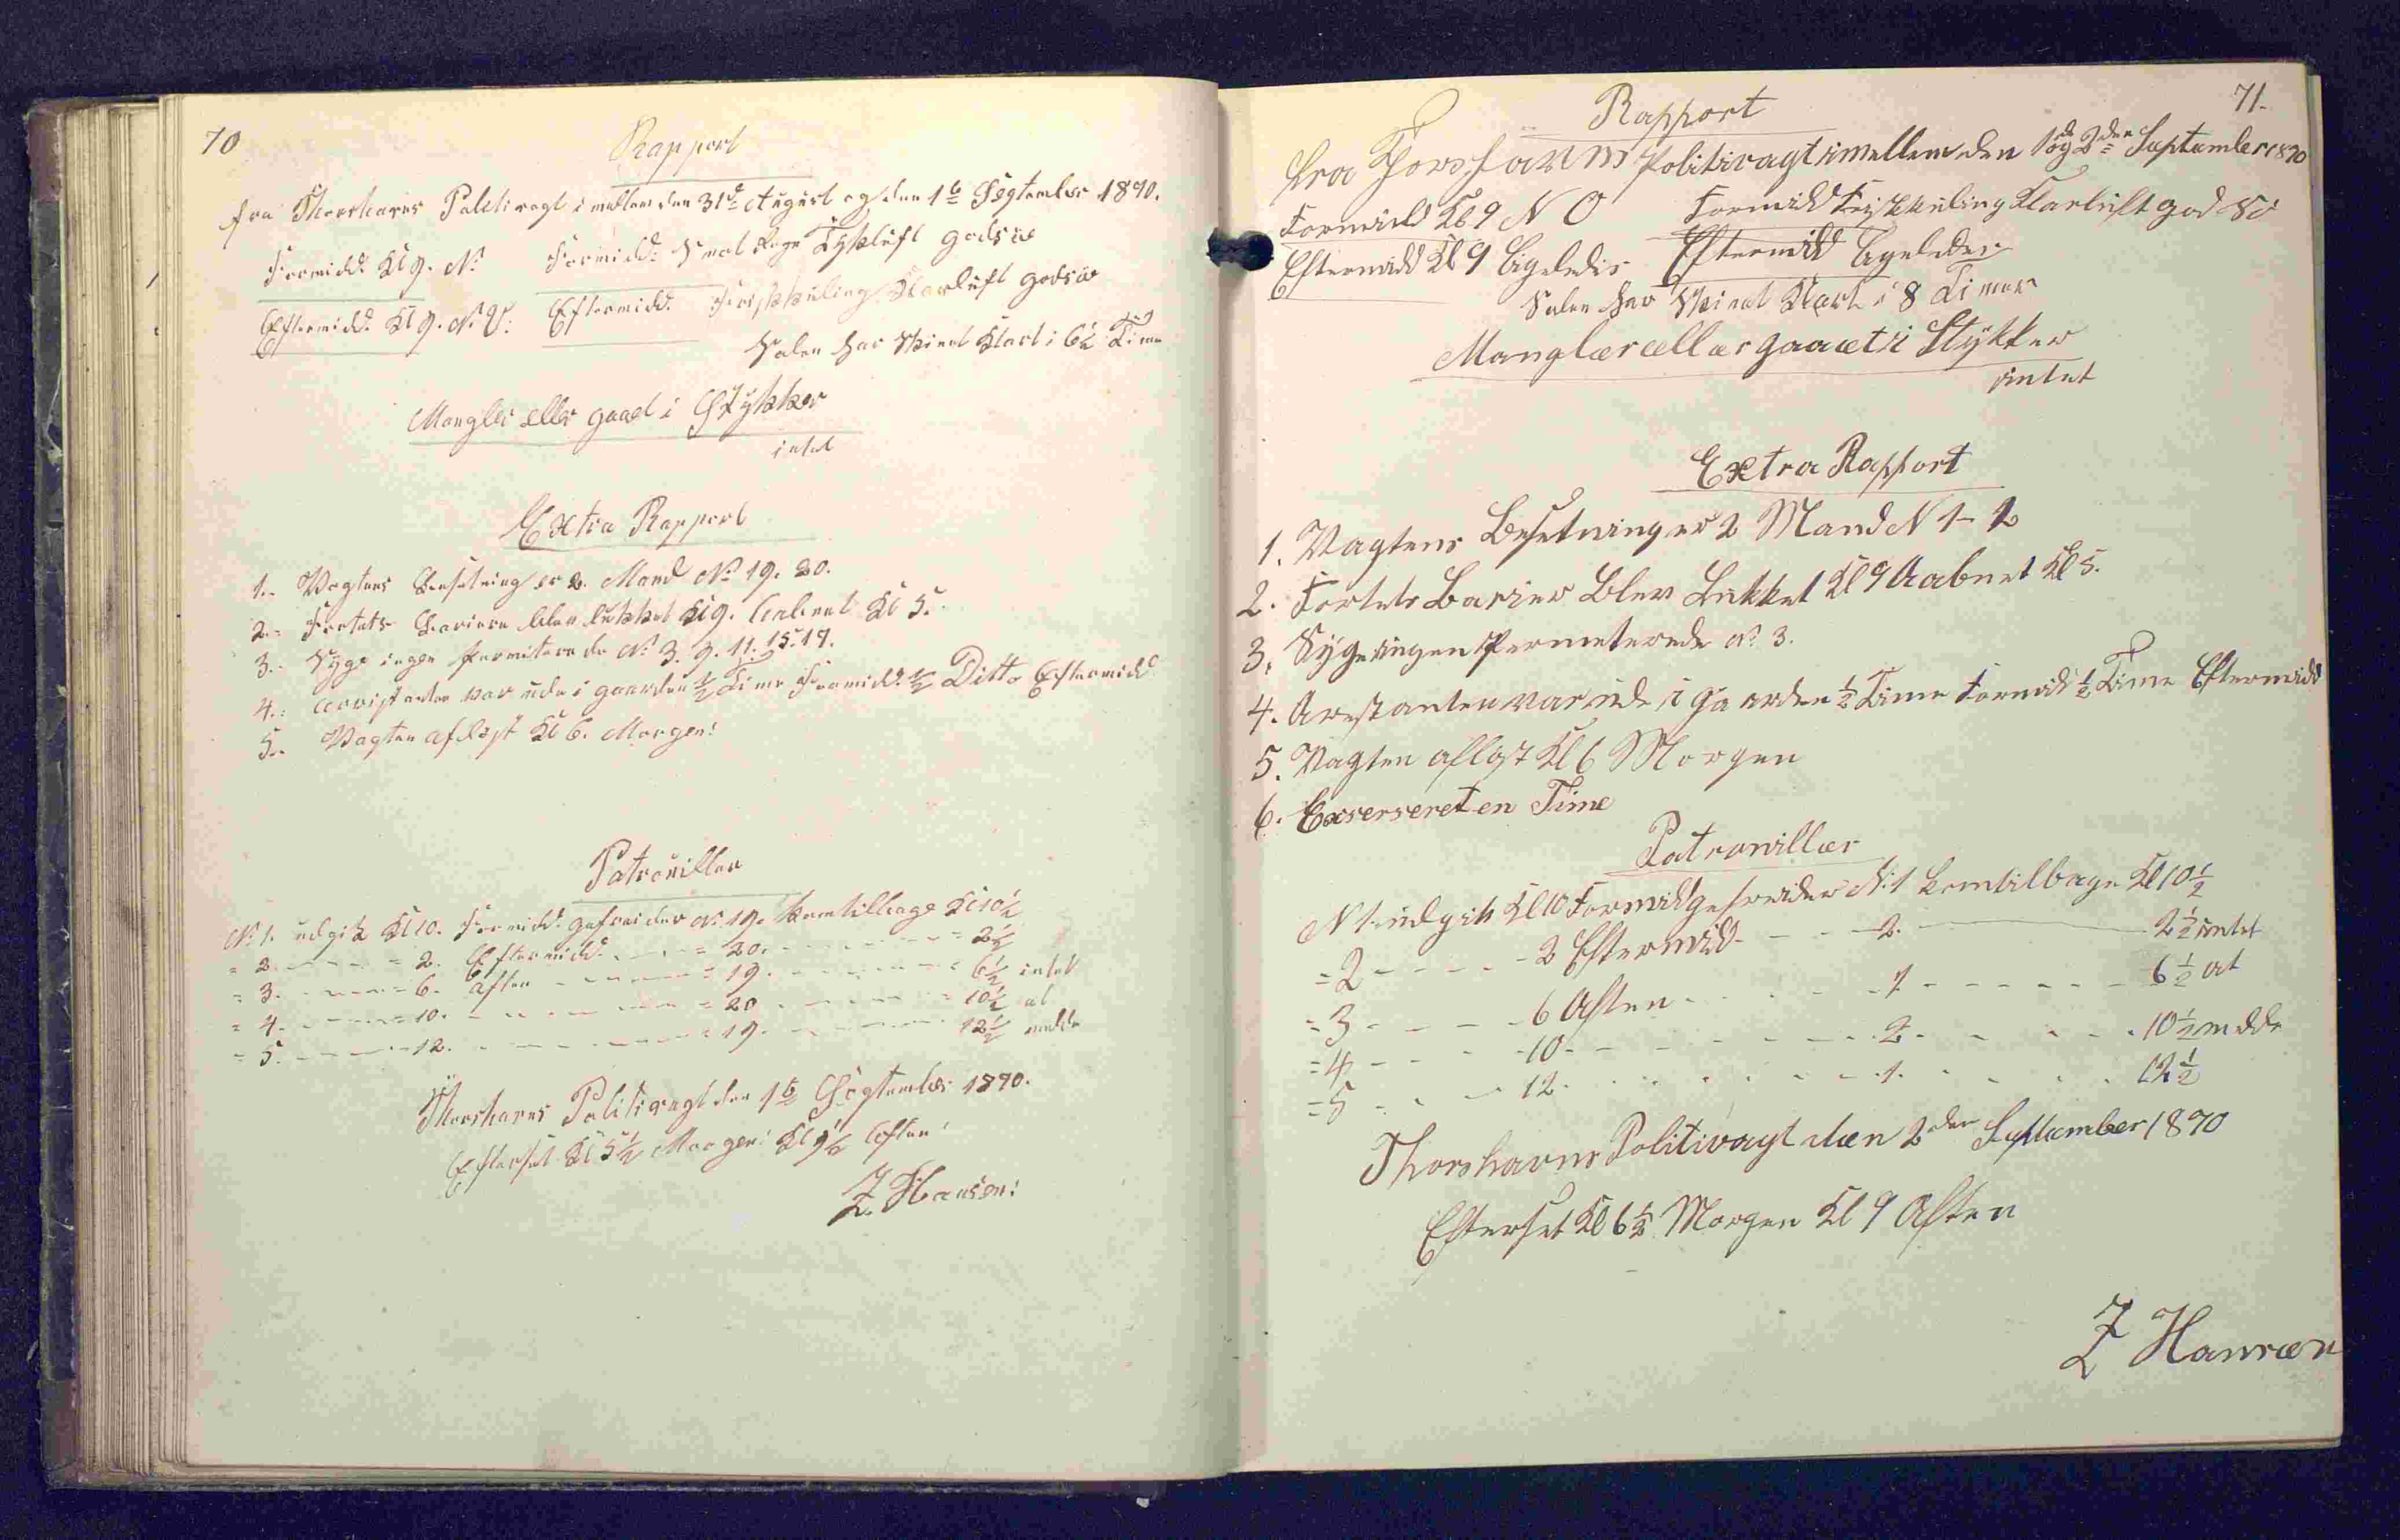 70
Rapport
fra Thorshavns Politivagt imellem den 31te August og den 1te Septembr 1890.
Formidd: Kl 9. N: Formidd: Tykluft godsie
Eftermidd: Kl 9. N.V: Eftermidd: Friskkuling Klarluft godsie
Solen har Skinet Klart i 6½ Time
Mangler eller gaaet i Stykker
intet
Extra Rapport
1. Vagtens Besetning er 2. Mand No 19. 20.
2. Fortets Bariere blev lukket Kl 9. Aabnet Kl 5.
3. Syge ingen permiterede No 3. 9. 11. 15. 17.
4. Arristanten var ude i gaarden ½ Time Formidd: ½ Ditto Eftermidd
5. Vagten afløst Kl 6. Morgen:
Patrouiller
No 1. udgik Kl 10. Formidd: gefreider No 19. kom tilbage Kl 10½
= 2. - - - = 2. Eftermidd. - - = 20. - - - - = 2½
= 3. - - - = 6. Aften - - - = 19. - - - - = 6½ intet
= 4. - - - = 10. - - - - = 20 - - - - = 10½ at
= 5. - - - 12. - - - - = 19. - - - - 12½ melde
Thorshavns Politivagt den 1te Septembr 1890.
Efterset Kl 5½ Morgen: Kl 9½ Aften:
Z. Hansen:
71.
Rapport
fra Thorshavns Politivagt imellem den 1 og 2den September 1890
Formidd Kl 9 N O Formidd Friskkuling Klarluft god Sie
Eftermidd Kl 9 ligeledes Eftermidd ligeledes
Solen har Skinet Klart i 8 Timer
Manglær ellær gaaæt i Stykker
intet
Extra Rapport
1. Vagtens Besetning er 2 Mand N 1 - 2
2. Fortets Barier Blev Lukket Kl 9 Aabnet Kl 5.
3. Syge ingen Permeterede No 3.
4. Arestanten var ude i Gaarden ½ Time Formid ½ Time Eftermidd
5. Vagten afløst Kl 6 Morgen
6. Exserseret en Time
Patrouillær
N 1. udgik Kl 10 Formid gefreider N: 1 kom tilbage Kl 10½
= 2 - - - - 2 Eftermid - - - 2. 2½ intet
= 3 - - - - 6 Aften - - - - 1 - - - - 6½ at
= 4 - - - - 10 - - - - 2 - - - - 10½ melde
= 5 - - - 12 - - - - 1. - - - - 12½
Thorshavns Politivagt dæn 2den September 1890
Efterset Kl 6½ Morgen Kl 9 Aften
Z Hansæn